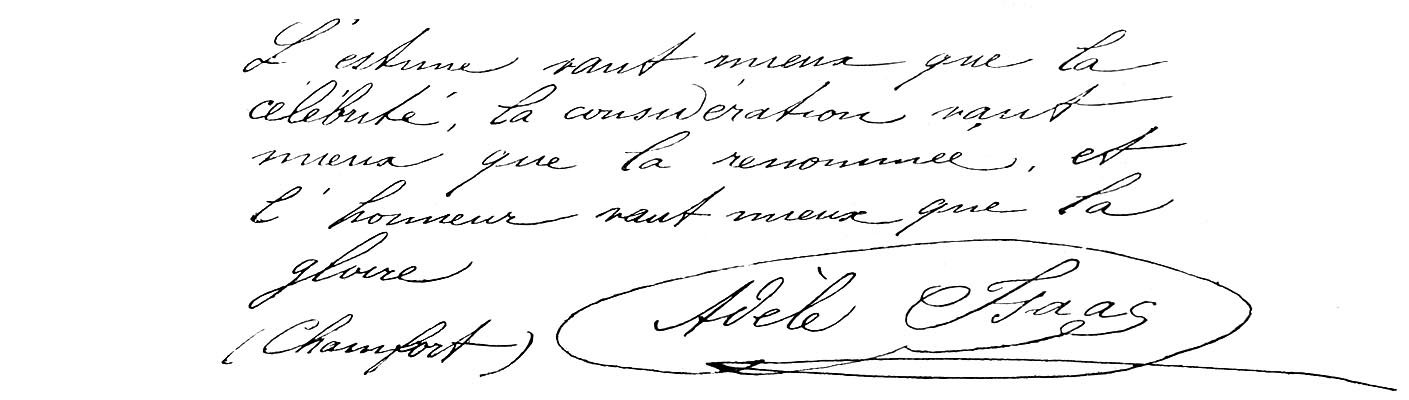 L'estime vaut mieux que la
célébrité, la considération vaut
mieux que la renommée, et
l'honneur vaut mieux que la
gloire
(Chamfort)
Adèle Isaac